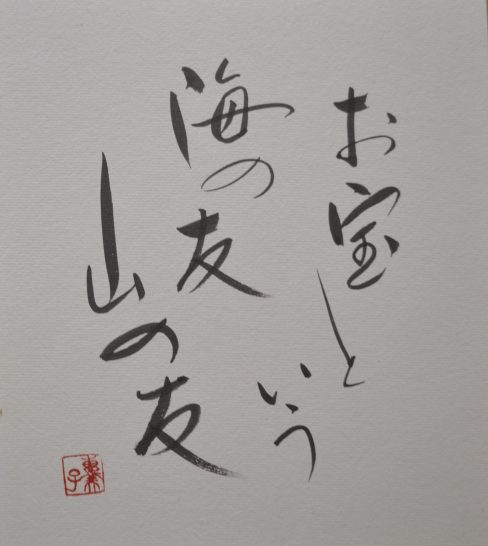 お宝という
海の友
山の友